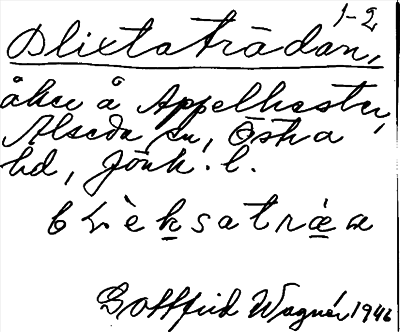 1-2
Blixtaträdan,
åker å Appelkester,
Alseda sn, Östra
hd, Jönk. l.
blèksatræa
Gottfrid Wagnér 1946